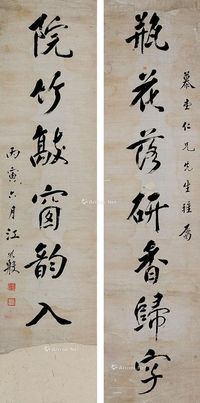 仁兄先生雅屬
瓶花落研香歸字
院竹敲窗韻入
丙寅六月江孔殷